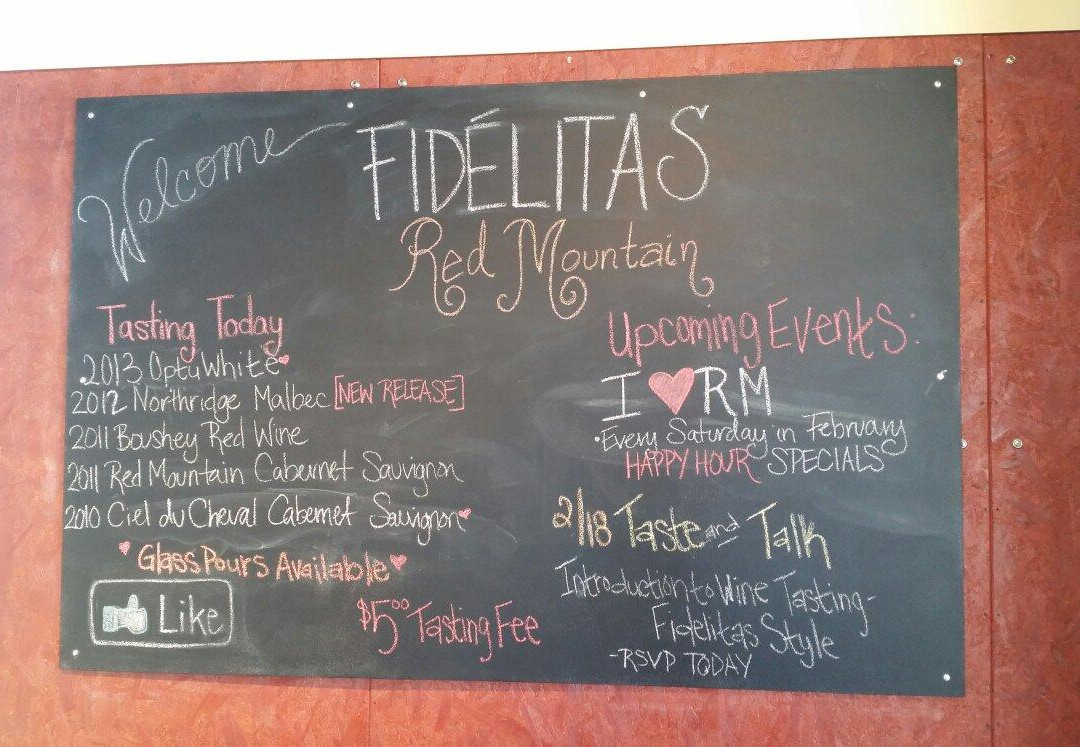 Welcome
FIDÉLITAS
Red Mountain
Tasting Today
2013 Optu White
2012 Northridge Malbec [NEW RELEASE]
2011 Boushey Red Wine
2011 Red Mountain Cabernet Sauvignon
2010 Ciel du Cheval Cabernet Sauvignon
Glass Pours Available
Like
$5.00 Tasting Fee
Upcoming Events:
I ♥ RM
•Every Saturday in February
HAPPY HOUR SPECIALS
2/18 Taste and Talk
Introduction to Wine Tasting-
Fidelitas Style
-RSVP TODAY